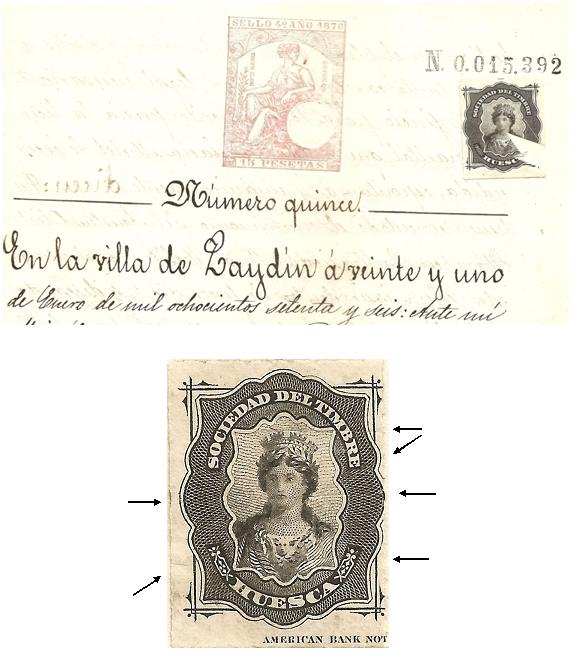 SELLO 4º AÑO 1876
15 PESETAS
N. 0.015.392
SOCIEDAD DEL TIMBRE
HUESC
Número quince.
En la villa de Zaydín á veinte y uno
de Enero de mil ochocientos setenta y seis: Ante mí
SOCIEDAD DEL TIMBRE
HUESCA
AMERICAN BANK NOT